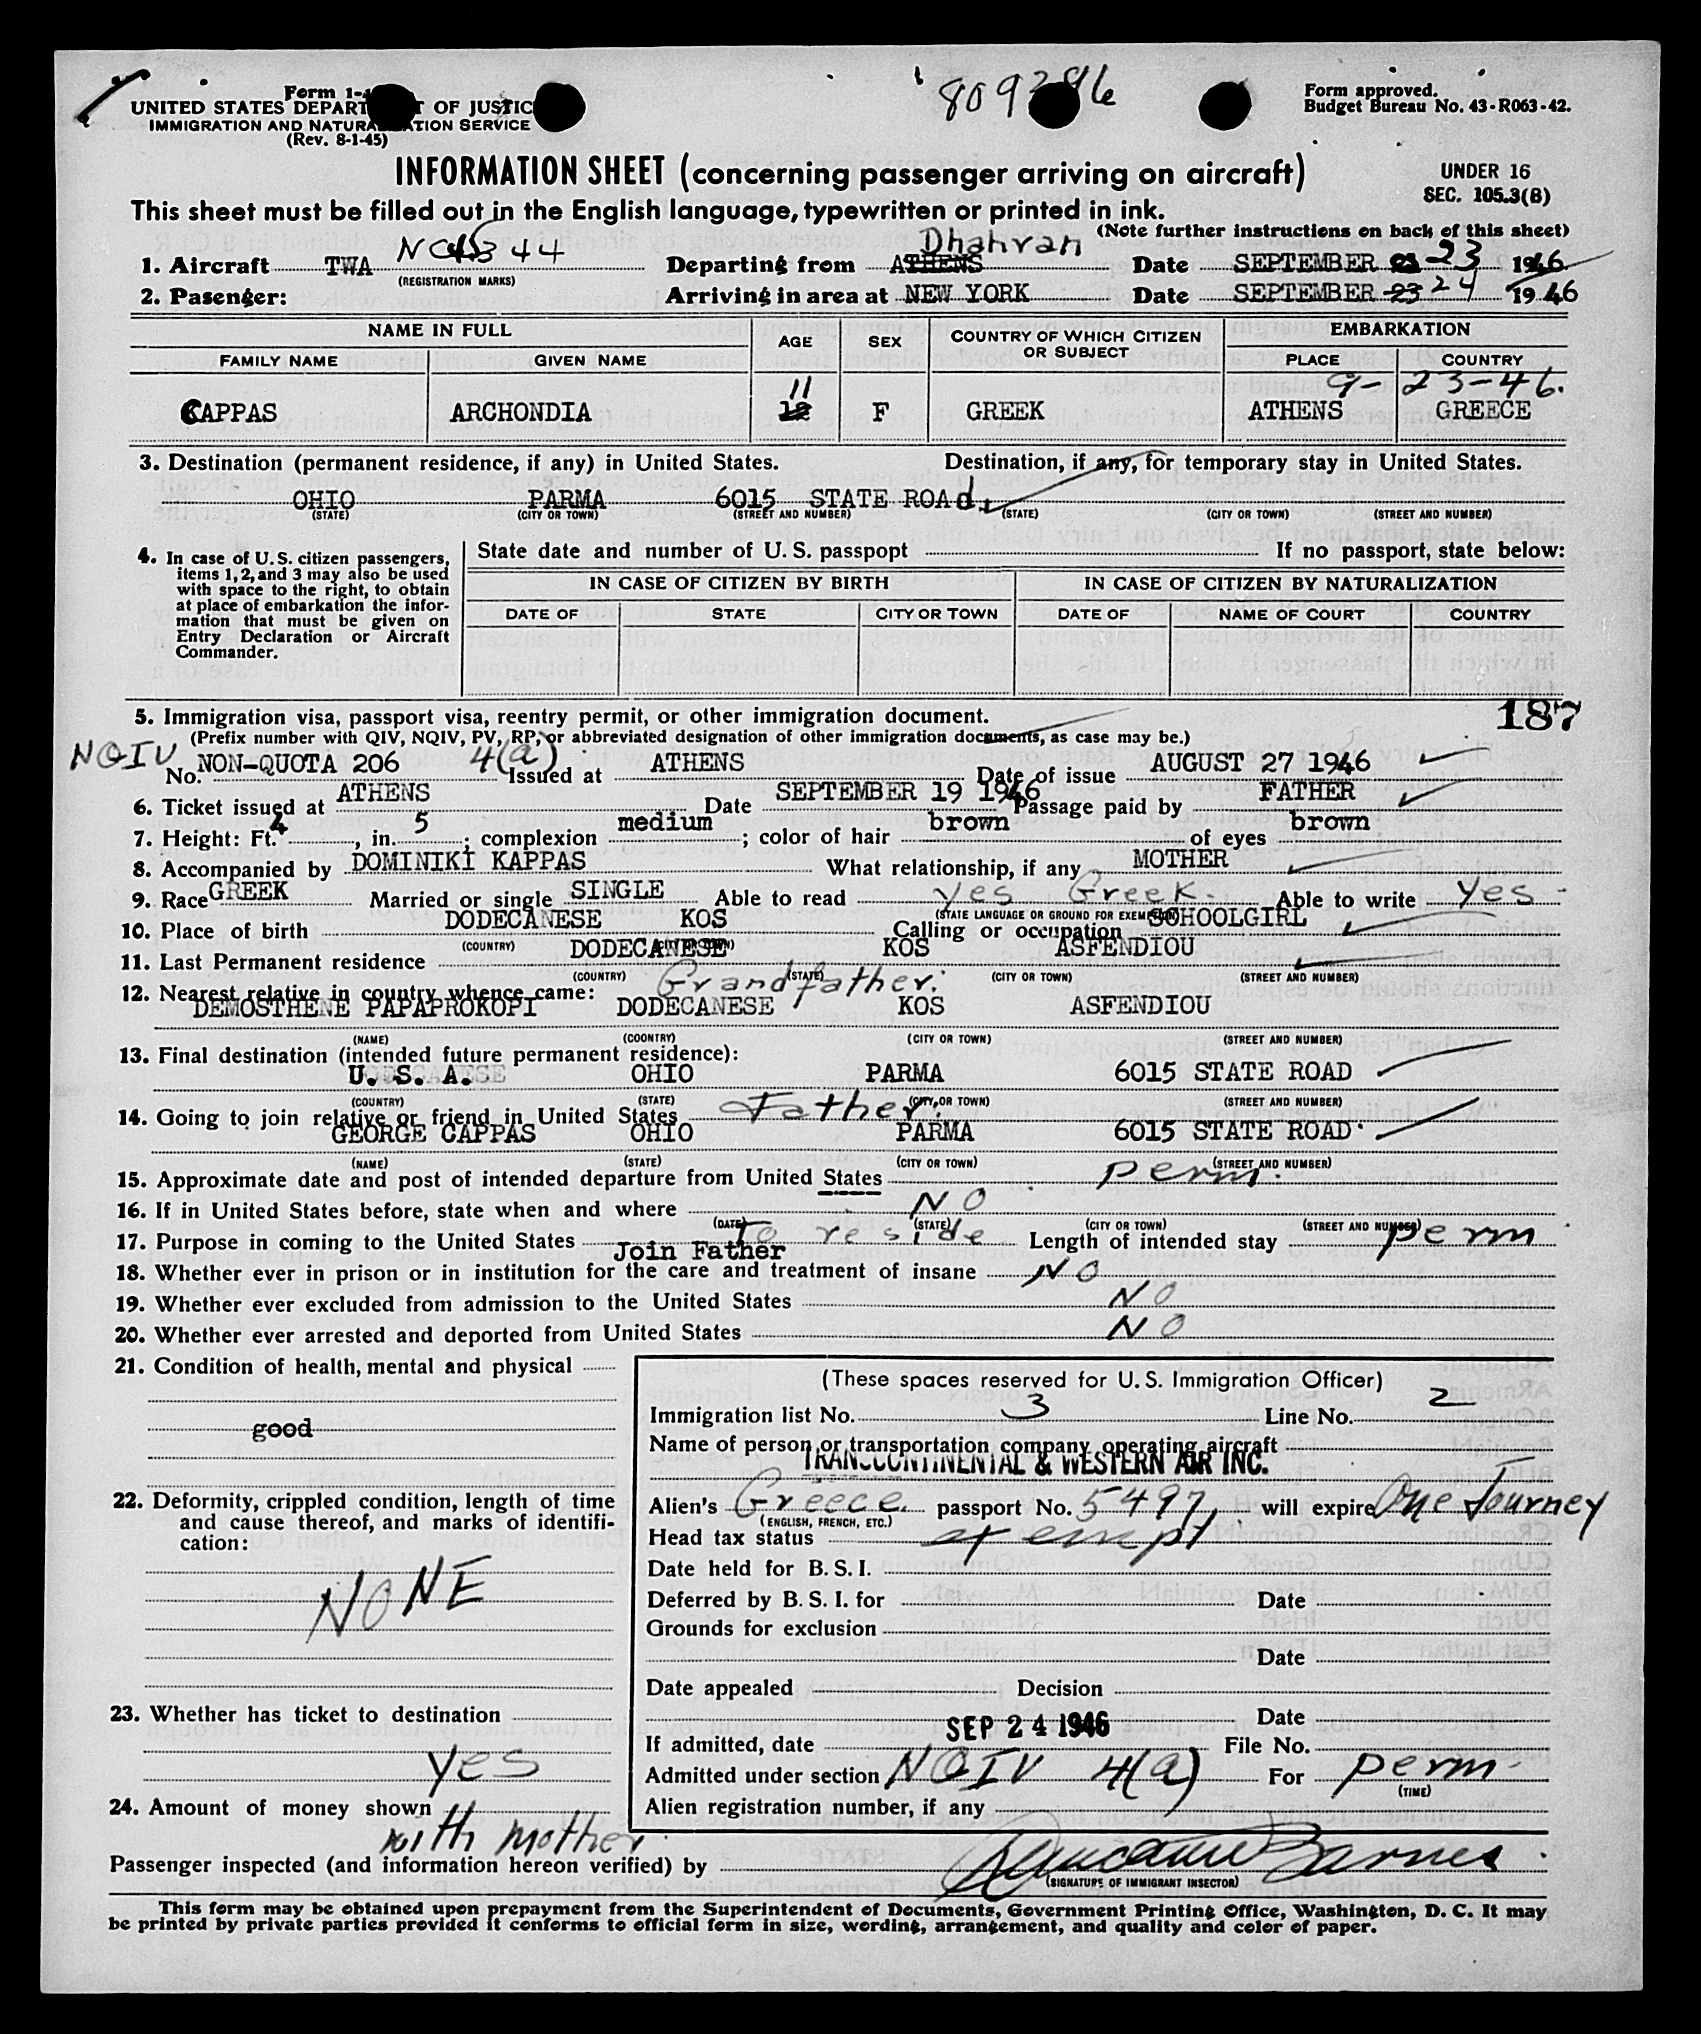 Form 1-4
809386
Form approved.
UNITED STATES DEPART T OF JUSTIC
Budget Bureau No. 43-R063-42.
IMMIGRATION AND NATURA ATION SERVICE
(Rev. 8-1-45)
INFORMATION SHEET (concerning passenger arriving on aircraft)
UNDER 16
SEC. 105.3(B)
This sheet must be filled out in the English language, typewritten or printed in ink.
(Note further instructions on back of this sheet)
Dhahran
1. Aircraft TWA Departing from ATHENS Date SEPTEMBER 23 1946
(REGISTRATION MARKS)
2. Pasenger: Arriving in area at NEW YORK Date SEPTEMBER 23 24 1946
NAME IN FULL AGE SEX COUNTRY OF WHICH CITIZEN OR SUBJECT EMBARKATION
FAMILY NAME GIVEN NAME PLACE COUNTRY
11 9-23-46.
CAPPAS ARCHONDIA 12 F GREEK ATHENS GREECE
3. Destination (permanent residence, if any) in United States. Destination, if any, for temporary stay in United States.
OHIO PARMA 6015 STATE ROAd.
(STATE) (CITY OR TOWN) (STREET AND NUMBER) (STATE) (CITY OR TOWN) (STREET AND NUMBER)
4. In case of U.S. citizen passengers, items 1, 2, and 3 may also be used with space to the right, to obtain at place of embarkation the information that must be given on Entry Declaration or Aircraft Commander.
State date and number of U. S. passpopt If no passport, state below:
IN CASE OF CITIZEN BY BIRTH IN CASE OF CITIZEN BY NATURALIZATION
DATE OF STATE CITY OR TOWN DATE OF NAME OF COURT COUNTRY
187
5. Immigration visa, passport visa, reentry permit, or other immigration document.
(Prefix number with QIV, NQIV, PV, RP, or abbreviated designation of other immigration documents, as case may be.)
NQIV No. NON-QUOTA 206 4(a) Issued at ATHENS Date of issue AUGUST 27 1946
6. Ticket issued at ATHENS Date SEPTEMBER 19 1946 Passage paid by FATHER
7. Height: Ft. 4, in. 5; complexion medium; color of hair brown of eyes brown
8. Accompanied by DOMINIKI KAPPAS What relationship, if any MOTHER
9. Race GREEK Married or single SINGLE Able to read yes Greek. Able to write yes
(STATE LANGUAGE OR GROUND FOR EXEMPTION)
10. Place of birth DODECANESE KOS Calling or occupation SCHOOLGIRL
(COUNTRY) (CITY OR TOWN)
11. Last Permanent residence DODECANESE KOS ASFENDIOU
(COUNTRY) (STATE) (CITY OR TOWN) (STREET AND NUMBER)
12. Nearest relative in country whence came: Grandfather.
DEMOSTHENE PAPAPROKOPI DODECANESE KOS ASFENDIOU
(NAME) (COONTRY) (CITY OR TOWN) (STREET AND NUMBER)
13. Final destination (intended future permanent residence):
U. S. A. OHIO PARMA 6015 STATE ROAD
(COUNTRY) (STATE) (CITY, OR TOWN) (STREET AND NUMBER)
14. Going to join relative or friend in United States Father.
GEORGE CAPPAS OHIO PARMA 6015 STATE ROAD
(NAME) (STATE) (CITY OR TOWN) (STREET AND NUMBER)
15. Approximate date and post of intended departure from United States perm.
16. If in United States before, state when and where NO
(DATE) (STATE) (CITY OR TOWN) (STREET AND NUMBER)
17. Purpose in coming to the United States To reside Length of intended stay perm
Join Father
18. Whether ever in prison or in institution for the care and treatment of insane NO
19. Whether ever excluded from admission to the United States NO
20. Whether ever arrested and deported from United States NO
21. Condition of health, mental and physical
good
22. Deformity, crippled condition, length of time and cause thereof, and marks of identification:
NONE
23. Whether has ticket to destination
yes
24. Amount of money shown
with mother
(These spaces reserved for U.S. Immigration Officer)
Immigration list No. 3 Line No. 2
Name of person or transportation company operating aircraft
TRANSCONTINENTAL & WESTERN AIR INC.
Alien's Greece passport No. 5497 will expire One Journey
(ENGLISH, FRENCH, ETC.)
Head tax status exempt
Date held for B. S. I.
Deferred by B. S. I. for Date
Grounds for exclusion
Date
Date appealed Decision
Date
If admitted, date SEP 24 1946 File No.
Admitted under section NQIV 4(a) For perm
(TIME)
Alien registration number, if any
Passenger inspected (and information hereon verified) by Barnes
(SIGNATURE OF IMMIGRANT INSECTOR)
This form may be obtained upon prepayment from the Superintendent of Documents, Government Printing Office, Washington, D. C. It may
be printed by private parties provided it conforms to official form in size, wording, arrangement, and quality and color of paper.